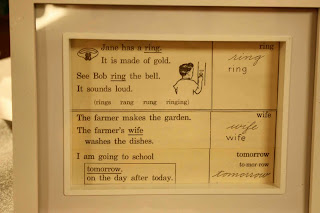 Jane has a ring.
It is made of gold.
See Bob ring the bell.
It sounds loud.
(rings rang rung ringing)
ring
ring
ring
The farmer makes the garden.
The farmer's wife
washes the dishes.
wife
wife
wife
I am going to school
tomorrow.
on the day after today.
tomorrow
to-mor-row
tomorrow